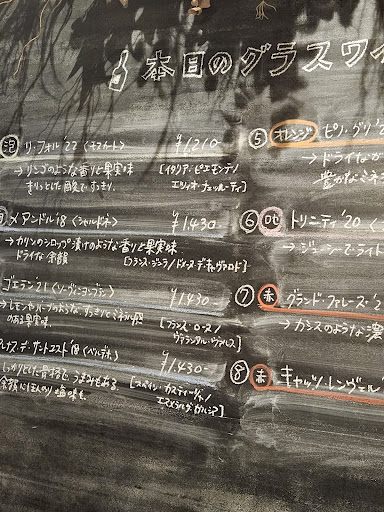 本日のグラスワイ
泡 リ・フォル'22 〈モスカート〉 ¥1,210-
→リンゴのような香りと果実味
きりっとした酸ですっきり。
[イタリア・ピエモンテ/
エツィオ・チェッルーティ]
メアンドル'18 〈シャルドネ〉 ¥1,430-
→カリンのシロップ漬けのような香りと果実味
ドライな余韻
[フランス・ジュラ/
ゴエテン'21 〈ソーヴィニヨンブラン〉 ¥1,430-
→レモンやハーブのような、すっきりとミネラル感
のある果実味。
[フランス・ロース/
デ・サントエスト'18 〈ベルデホ〉 ¥1,430-
しっかりとした骨格で うまみもある。
余韻にほんのり塩味も
[スペイン・カスティーリャ/
エスメラルダ・ガルシア]
⑤ オレンジ ピリ・グリ'
→ドライなが
豊かなミネ
⑥ ロゼ トリニティ'20
→ジューシーでライト
⑦ 赤 グランド・フォレース'2
→カシスのような濃
⑧ 赤 キャッツ・レンヴェル'